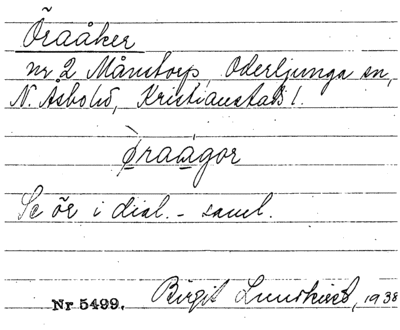 Öraåker
nr 2 Månstorp, Oderljunga sn,
N. Åsbohd, Kristianstads l.
öraågor
Se ör i dial. - saml.
Nr 5499. Birgit Lundkvist, 1938